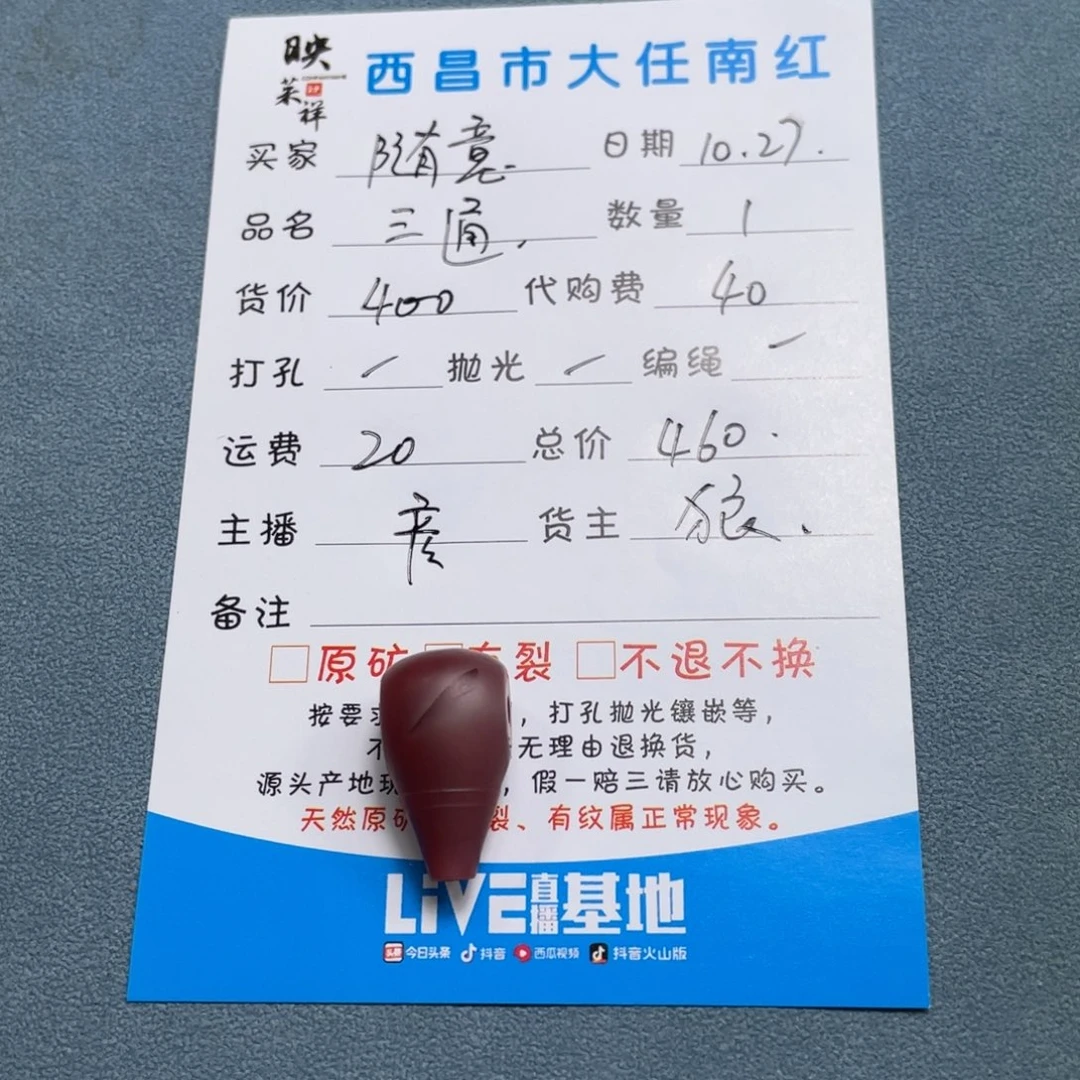 映
莱祥
西昌市大任南红
买家 随意 日期 10.27.
品名 三通, 数量 1
货价 400 代购费 40
打孔 / 抛光 / 编绳 /
运费 20 总价 460.
主播 彦 货主 狼.
备注
□原矿 裂 □不退不换
按要求 ,打孔抛光镶嵌等,
不 无理由退换货,
源头产地现 ,假一赔三请放心购买。
天然原矿 裂、有纹属正常现象。
LiVE直播基地
头条 今日头条 抖音 西瓜视频 抖音火山版